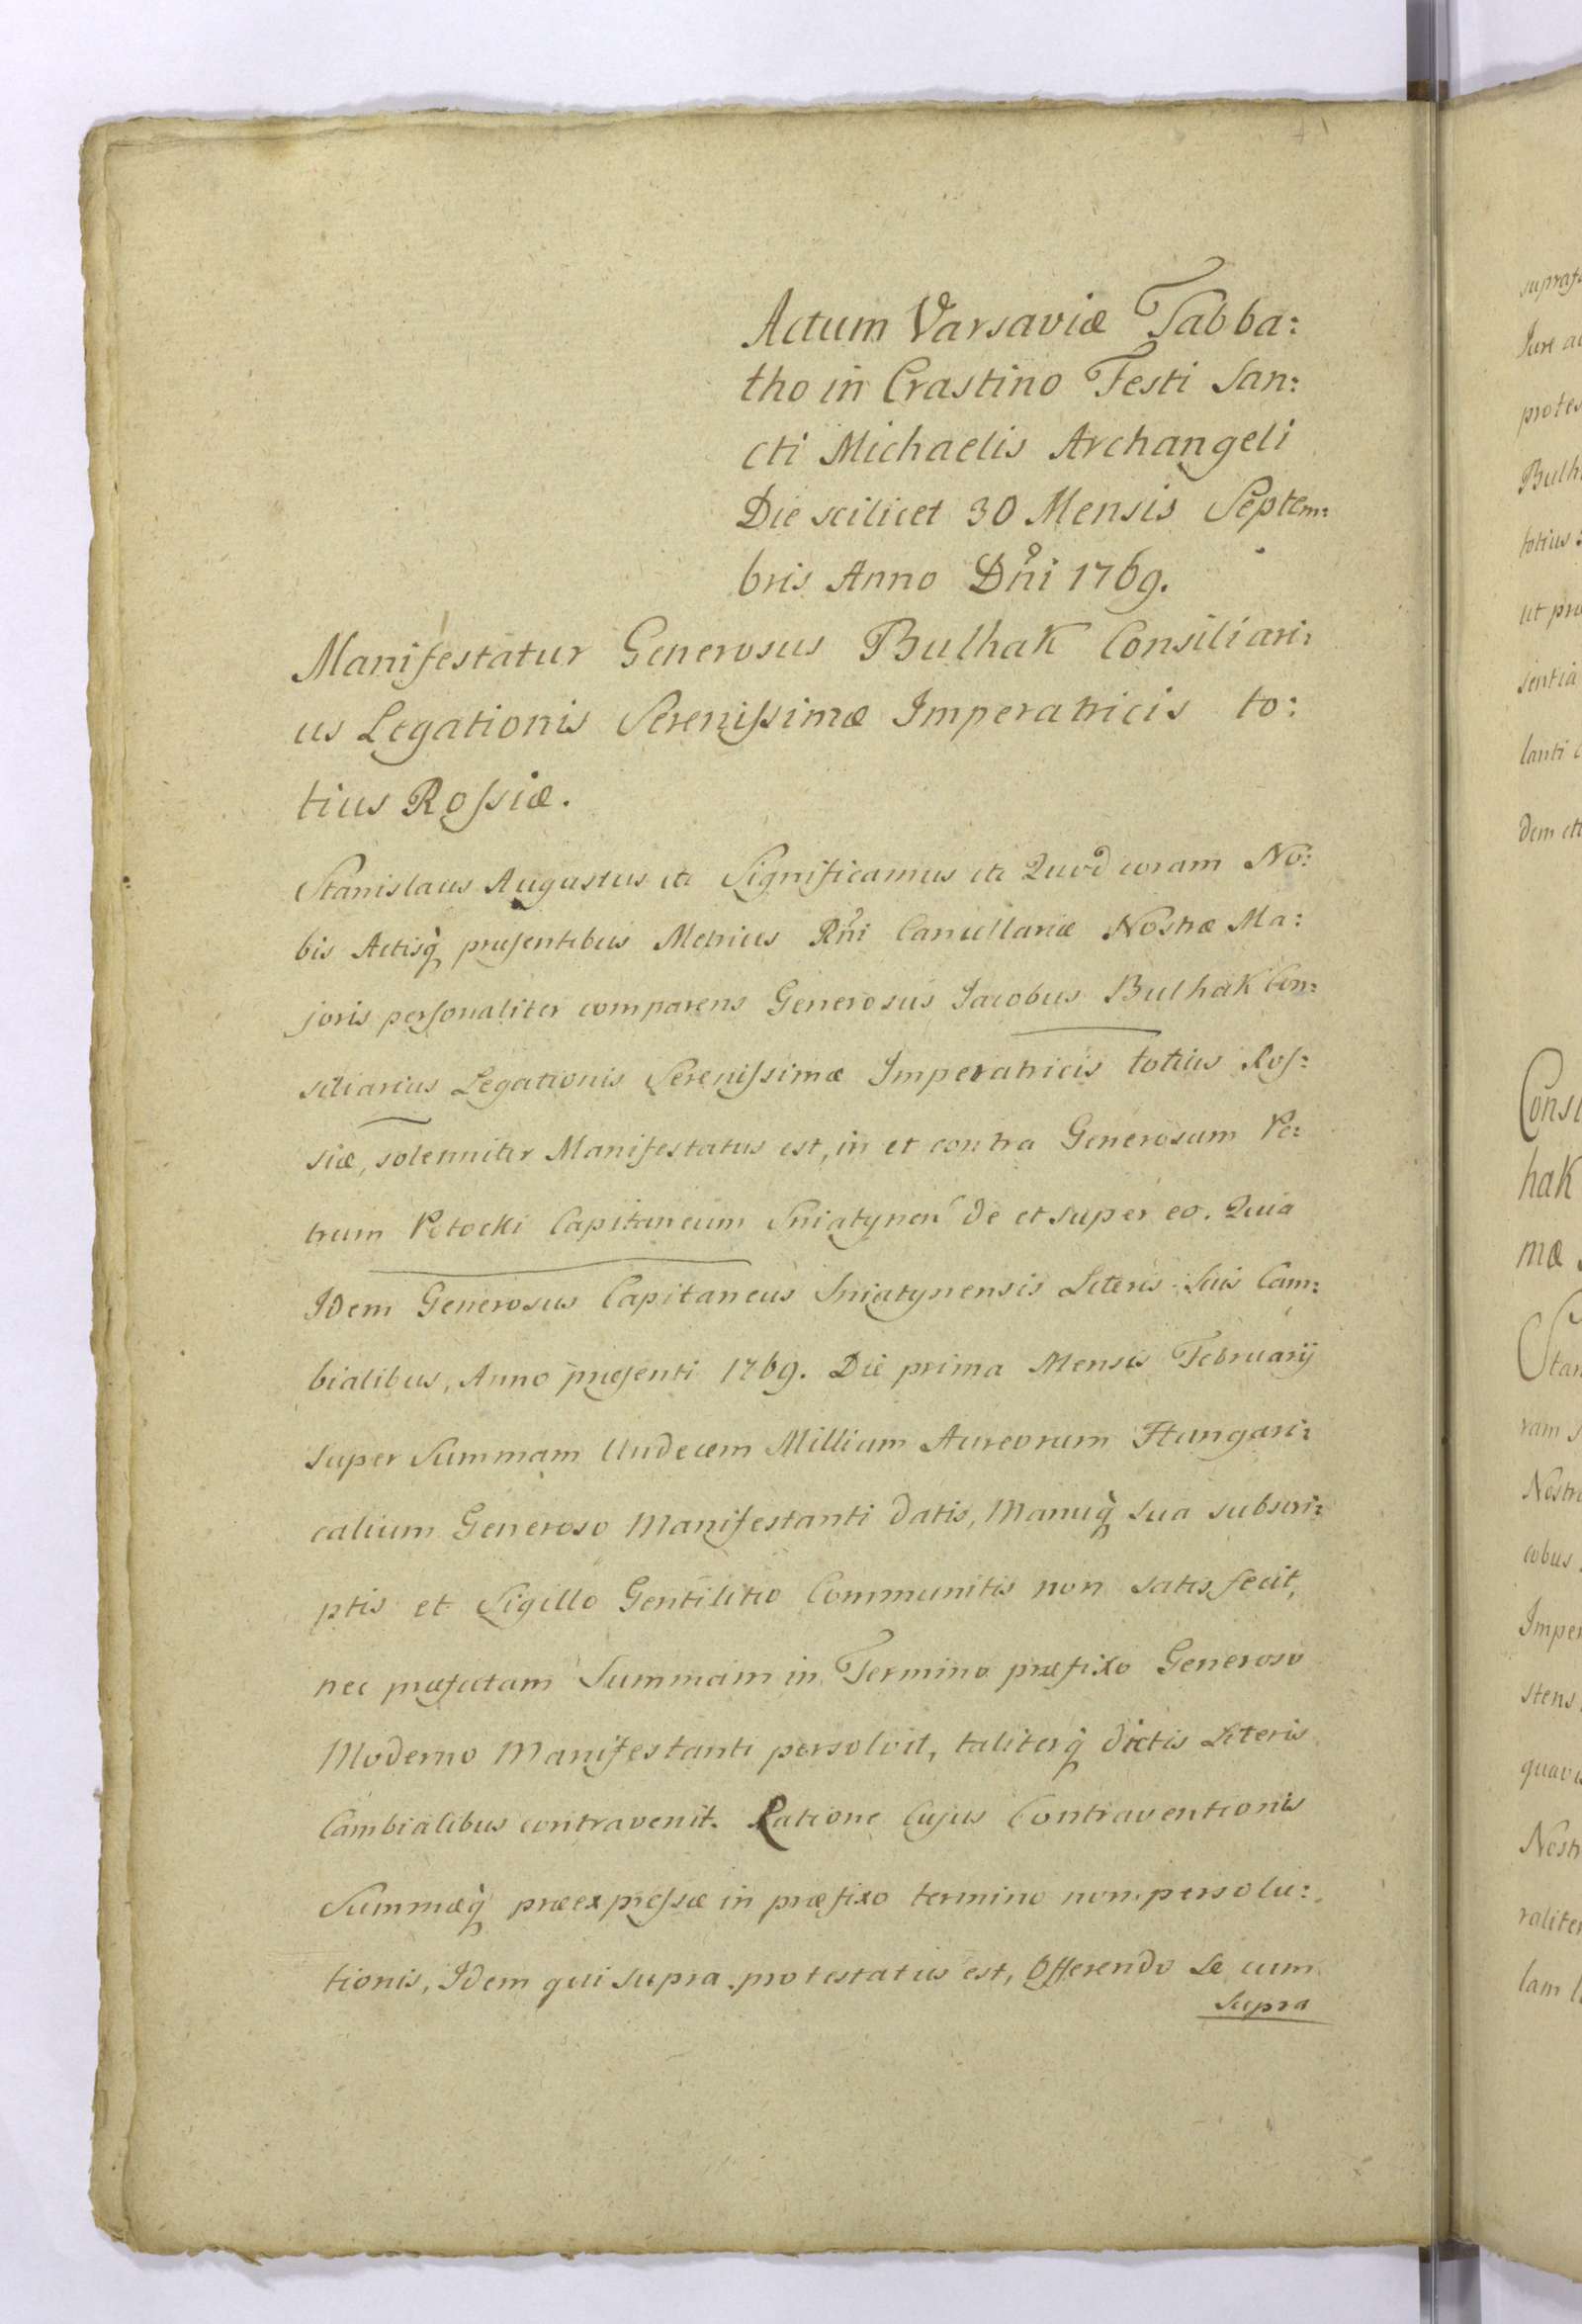 Actum Varsaviæ Sabba:
tho in Crastino Festi San:
cti Michaelis Archangeli
Die scilicet 30 Mensis Septem:
bris Anno Dn̄i 1769.
Manifestatur Generosus Bulhak Consiliari:
us Legationis Serenissimæ Imperatricis to:
tius Rossiæ.
Stanislaus Augustus etc Significamus etc Quod coram No:
bis Actisq̀ præsentibus Metrices Rn̄i Cancellariæ Nostræ Ma:
joris personaliter comparens Generosus Jacobus Bulhak Con:
siliarius Legationis Serenissimæ Imperatricis totius Ros:
siæ, solenniter Manifestatus est, in et contra Generosum Pe:
trum Potocki Capitaneum Sniatynen de et super eo. Quia
Idem Generosus Capitaneus Sniatynensis Literis Suis Cam:
bialibus, Anno præsenti 1769. Die prima Mensis February
super Summam Undecem Millium Aureorum Hungari:
calium Generoso Manifestanti datis, Manuq̀ sua subscri:
ptis et Sigillo Gentilitio Communitis non satis fecit,
nec præfatam Summam in Termino præfixo Generoso
Moderno Manifestanti persolvit, taliterq̀ dictis Literis
Cambialibus contravenit. Ratione Cujus Contraventionis
Summæq̀ præexpressæ in præfixo termino non persolu:
tionis, Idem qui supra protestatus est, Offerendo Se cum
supra
Jure
Bulh
totius
ut pro
sentia
lanti
Dem
Consi
hak
mæ
Stan
ram
Nostr
cobus
Imper
stens
quavi
Nostr
raliter
lam